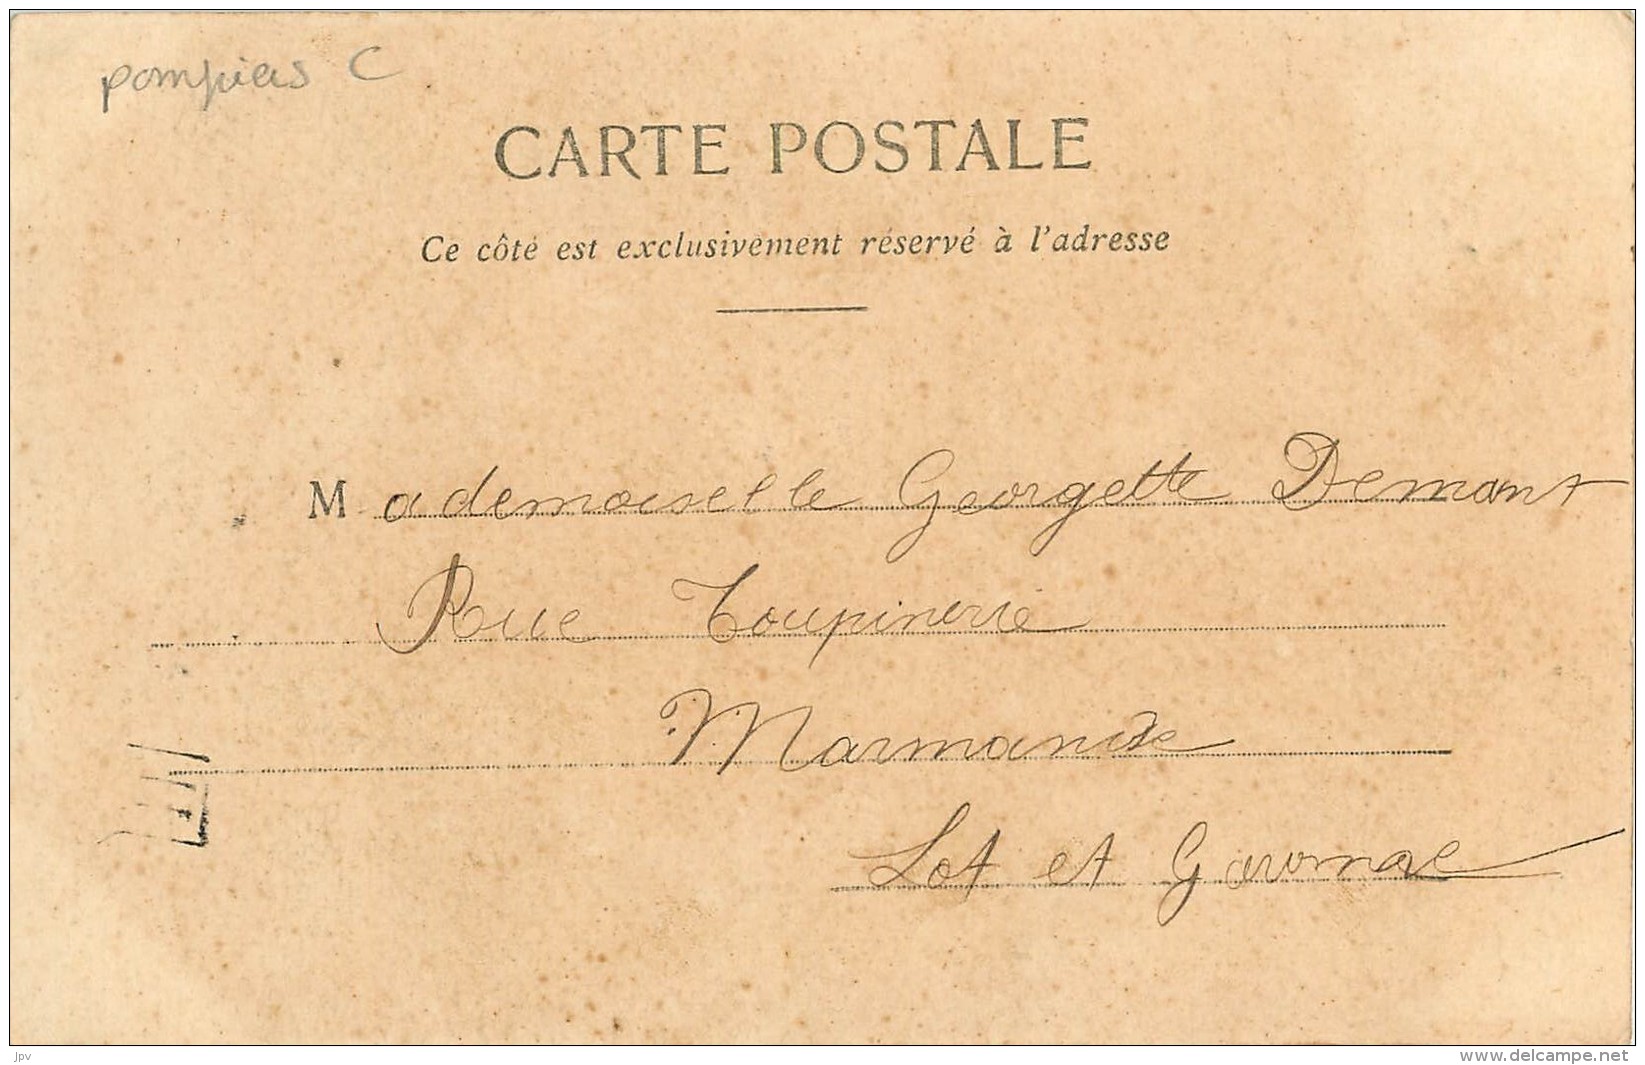 pompiers C
CARTE POSTALE
Ce côté est exclusivement réservé à l'adresse
Mademoiselle Georgette Demant
Rue Toupinerie
Marmande
Lot et Garonne
jpv
www.delcampe.net